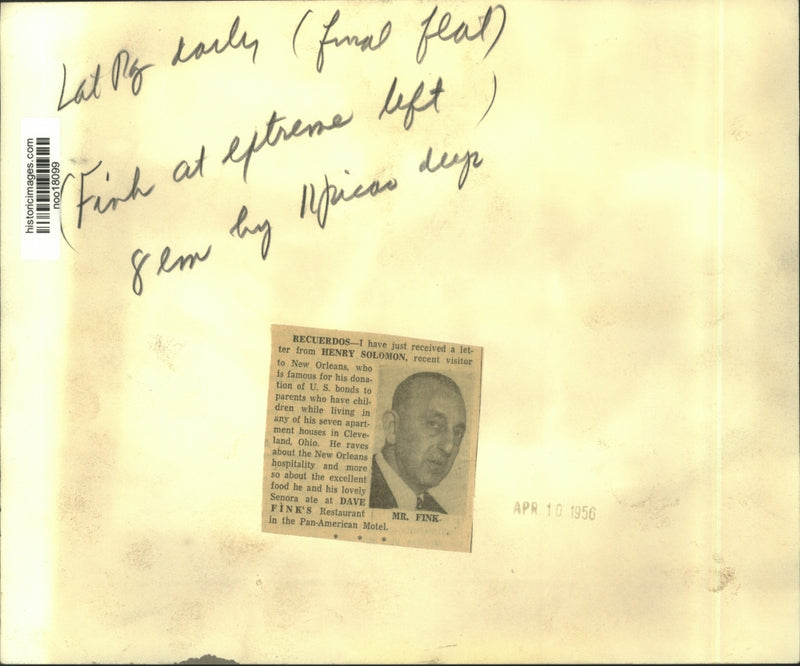 Lat Pg daily (final flat)
(Fink at extreme left)
8 em by picas deep
historicimages.com
noo18099
RECUERDOS—I have just received a let-
ter from HENRY SOLOMON, recent visitor
to New Orleans, who
is famous for his dona-
tion of U. S. bonds to
parents who have chil-
dren while living in
any of his seven apart-
ment houses in Cleve-
land, Ohio. He raves
about the New Orleans
hospitality and more
so about the excellent
food he and his lovely
Senora ate at DAVE
FINK'S Restaurant
in the Pan-American Motel.
MR. FINK
* * *
APR 10 1956